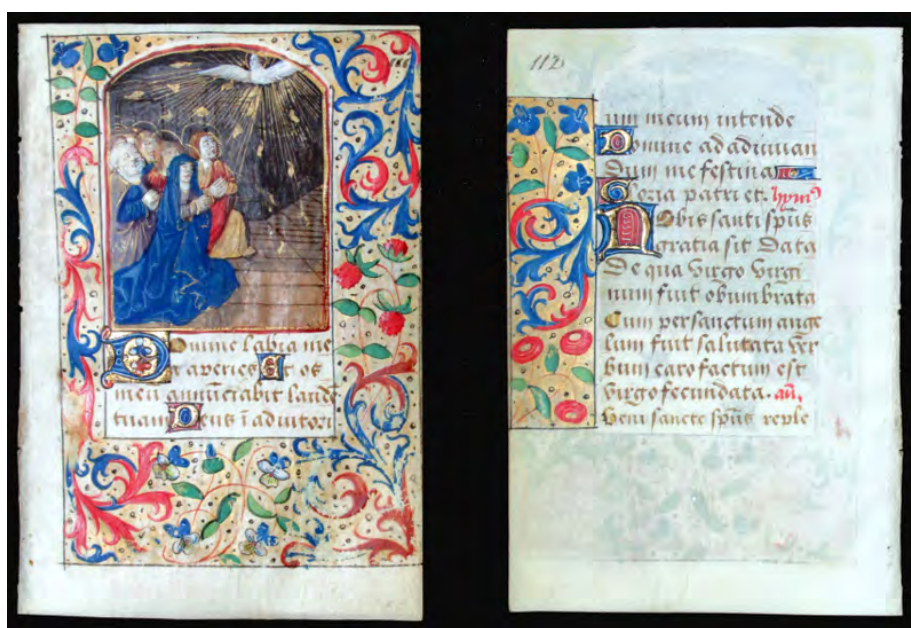 Domine labia me
a aperies Et os
meu annūciabit laudē
tuam Deus ī adiutori
112
um meum intende
Domine ad adiuuan
dum me festina
Gloria patri et. hymꝰ
Nobis santi spūs
gratia sit data
De qua virgo virgi
num fuit obumbrata
Cum per sanctum ange
lum fuit salutata ver
bum caro factum est
virgo fecundata. añ,
Veni sancte spūs reple